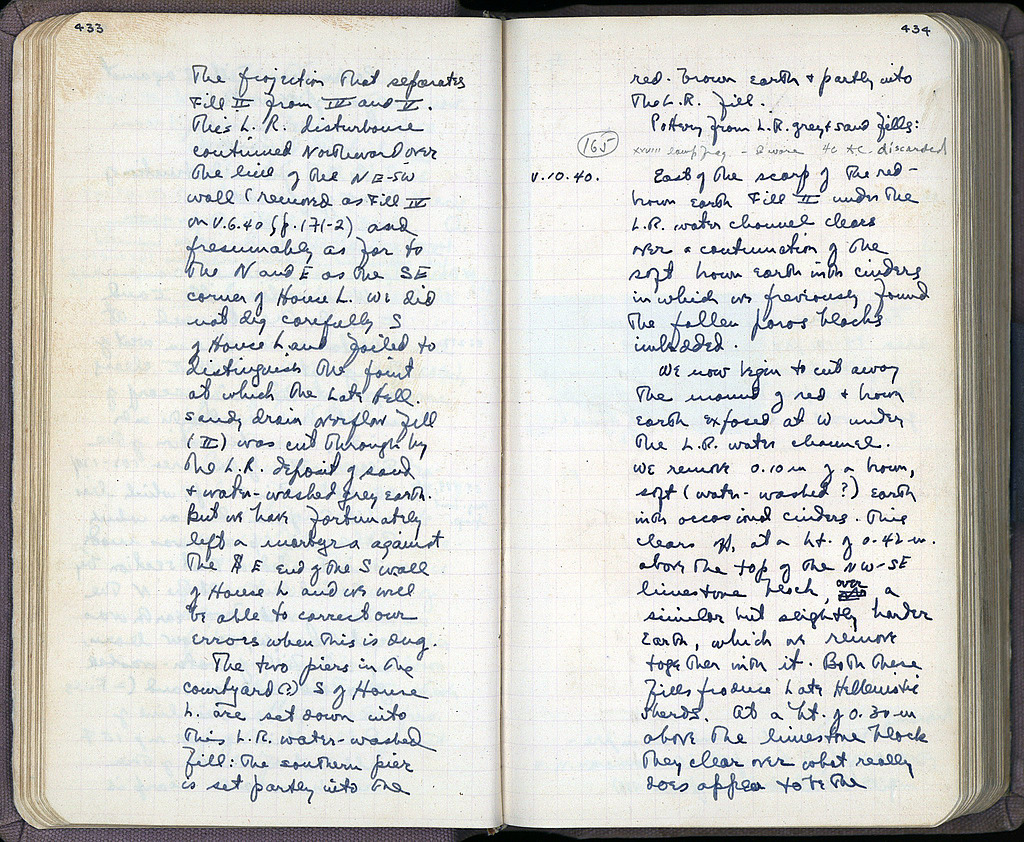 433
The projection that separates
Fill II from IV and V.
This L. R. disturbance
continued Northward over
the line of the NE-SW
wall (removed as Fill IV
on V.6.40 (p. 171-2) and
presumably as far to
the N and E as the SE
corner of House L. We did
not dig carefully S
of House L and failed to
distinguish the point
at which the Late Hell.
sandy drain overflow fill
(II) was cut through by
the L.R. deposit of sand
+ water-washed grey earth.
But we have fortunately
left a martyra against
the E end of the S wall
of House L and we will
be able to correct our
errors when this is dug.
The two piers in the
courtyard (?) S of House
L are set down into
this L.R. water-washed
fill: the southern pier
is set partly into the
434
red-brown earth + partly into
the L.R. fill.
Pottery from L.R. grey + sand fills:
165 XXVIII lamp frag. - discarded
V.10.40. East of the scarp of the red-
brown earth Fill II under the
L.R. water channel clears
over a continuation of the
soft brown earth with cinders
in which we previously found
the fallen poros blocks
imbedded.
We now begin to cut away
the mound of red + brown
earth exposed at W under
the L.R. water channel.
We remove 0.10 m of a brown,
soft (water-washed?) earth
with occasional cinders. This
clears off, at a ht. of 0.42 m.
above the top of the NW-SE
limestone block, over a
similar but slightly harder
earth, which we remove
together with it. Both these
fills produce Late Hellenistic
sherds. At a ht. of 0.30 m
above the limestone block
they clear over what really
does appear to be the